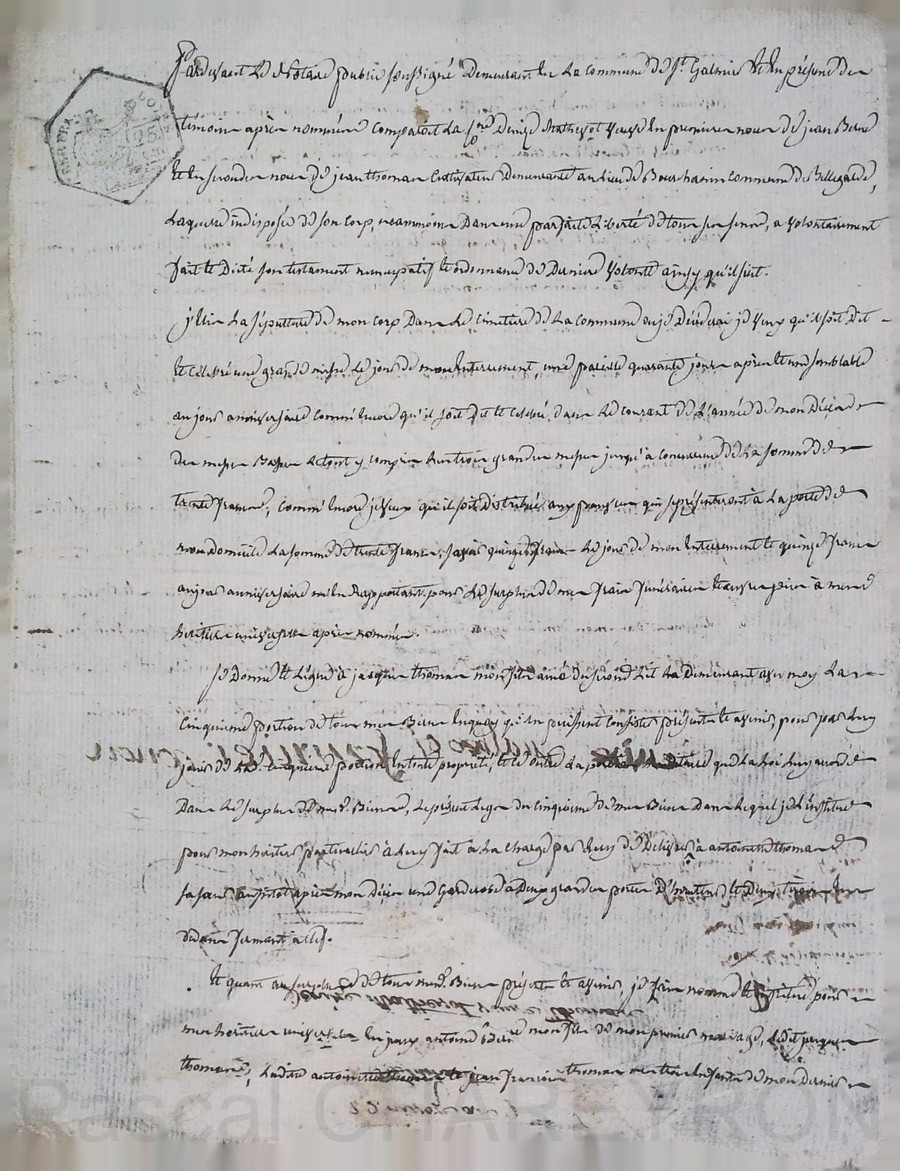 Pardevant Le Notaire public soussigné Demeurant en La commune de St Galmier Et En présence des
témoins après nommés comparait La Denize Mathevot veuve En premieres noces de jean
Et En secondes noces de jean thomas Cultivateur Demeurante au lieu de commune de Bellegarde,
Laquelle indisposée de son corp, neanmoins Dans une parfaite Liberté de tous ses sens, a volontairement
fait Et Dicté son testament nuncupatif Et ordonnance de Derniere volonté ainsy qu'il suit.
j'Elis La sépulture de mon corp Dans Le cimetiere de La commune ou je Décéderai je veux qu'il soit Dit
Et célébré une grande messe Le jour de mon Enterrement, une pareille quarante jours après Et une semblable
au jour anniversaire comm'Encore qu'il soit Dit Et célébré dans Le courant de L'année de mon Décès
Des messes Basses y compris Les trois grandes messes jusqu'à concurrence de La somme de
trente francs, comm'Encore je veux qu'il soit Distribué aux pauvres qui se présenteront à La porte de
mon Domicile La somme de trente francs, savoir quinze francs Le jour de mon Enterrement Et quinze francs
au jour anniversaire m'En Rapportant pour Le surplus de mes frais funéraires Et œuvres pies à mes
heritiers universels après nommés.
Je Donne Et Légue à jacques thomas mon fils ainé du second Lit Demeurant avec moy La
Cinquieme portion de tous mes Biens En quoy qu'ils puissent consister présents Et avenir pour par Luy
jouir de La cinquieme portion En toute propriété, Et ce outre La que La Loi Luy accorde
Dans Le surplus de mes Biens, Le présent Legs du cinquieme de mes Biens Dans Lequel je L'institue
pour mon heritier particulier à Luy fait à La charge par Luy de Délivrer à antoinette thomas
sa sœur aussitot après mon Décès une Garderobe à Deux grandes portes Et Deux tiroirs
fermant à clef.
Et quant au surplus de tous mes Biens présents Et avenir, je nomme Et institue pour
mes heritiers universels antoine mon fils de mon premier mariage, Ledit jacques
thomas, Ladite antoinette Et jean francois thomas mes trois Enfants de mon Dernier
Pascal CHAREYRON